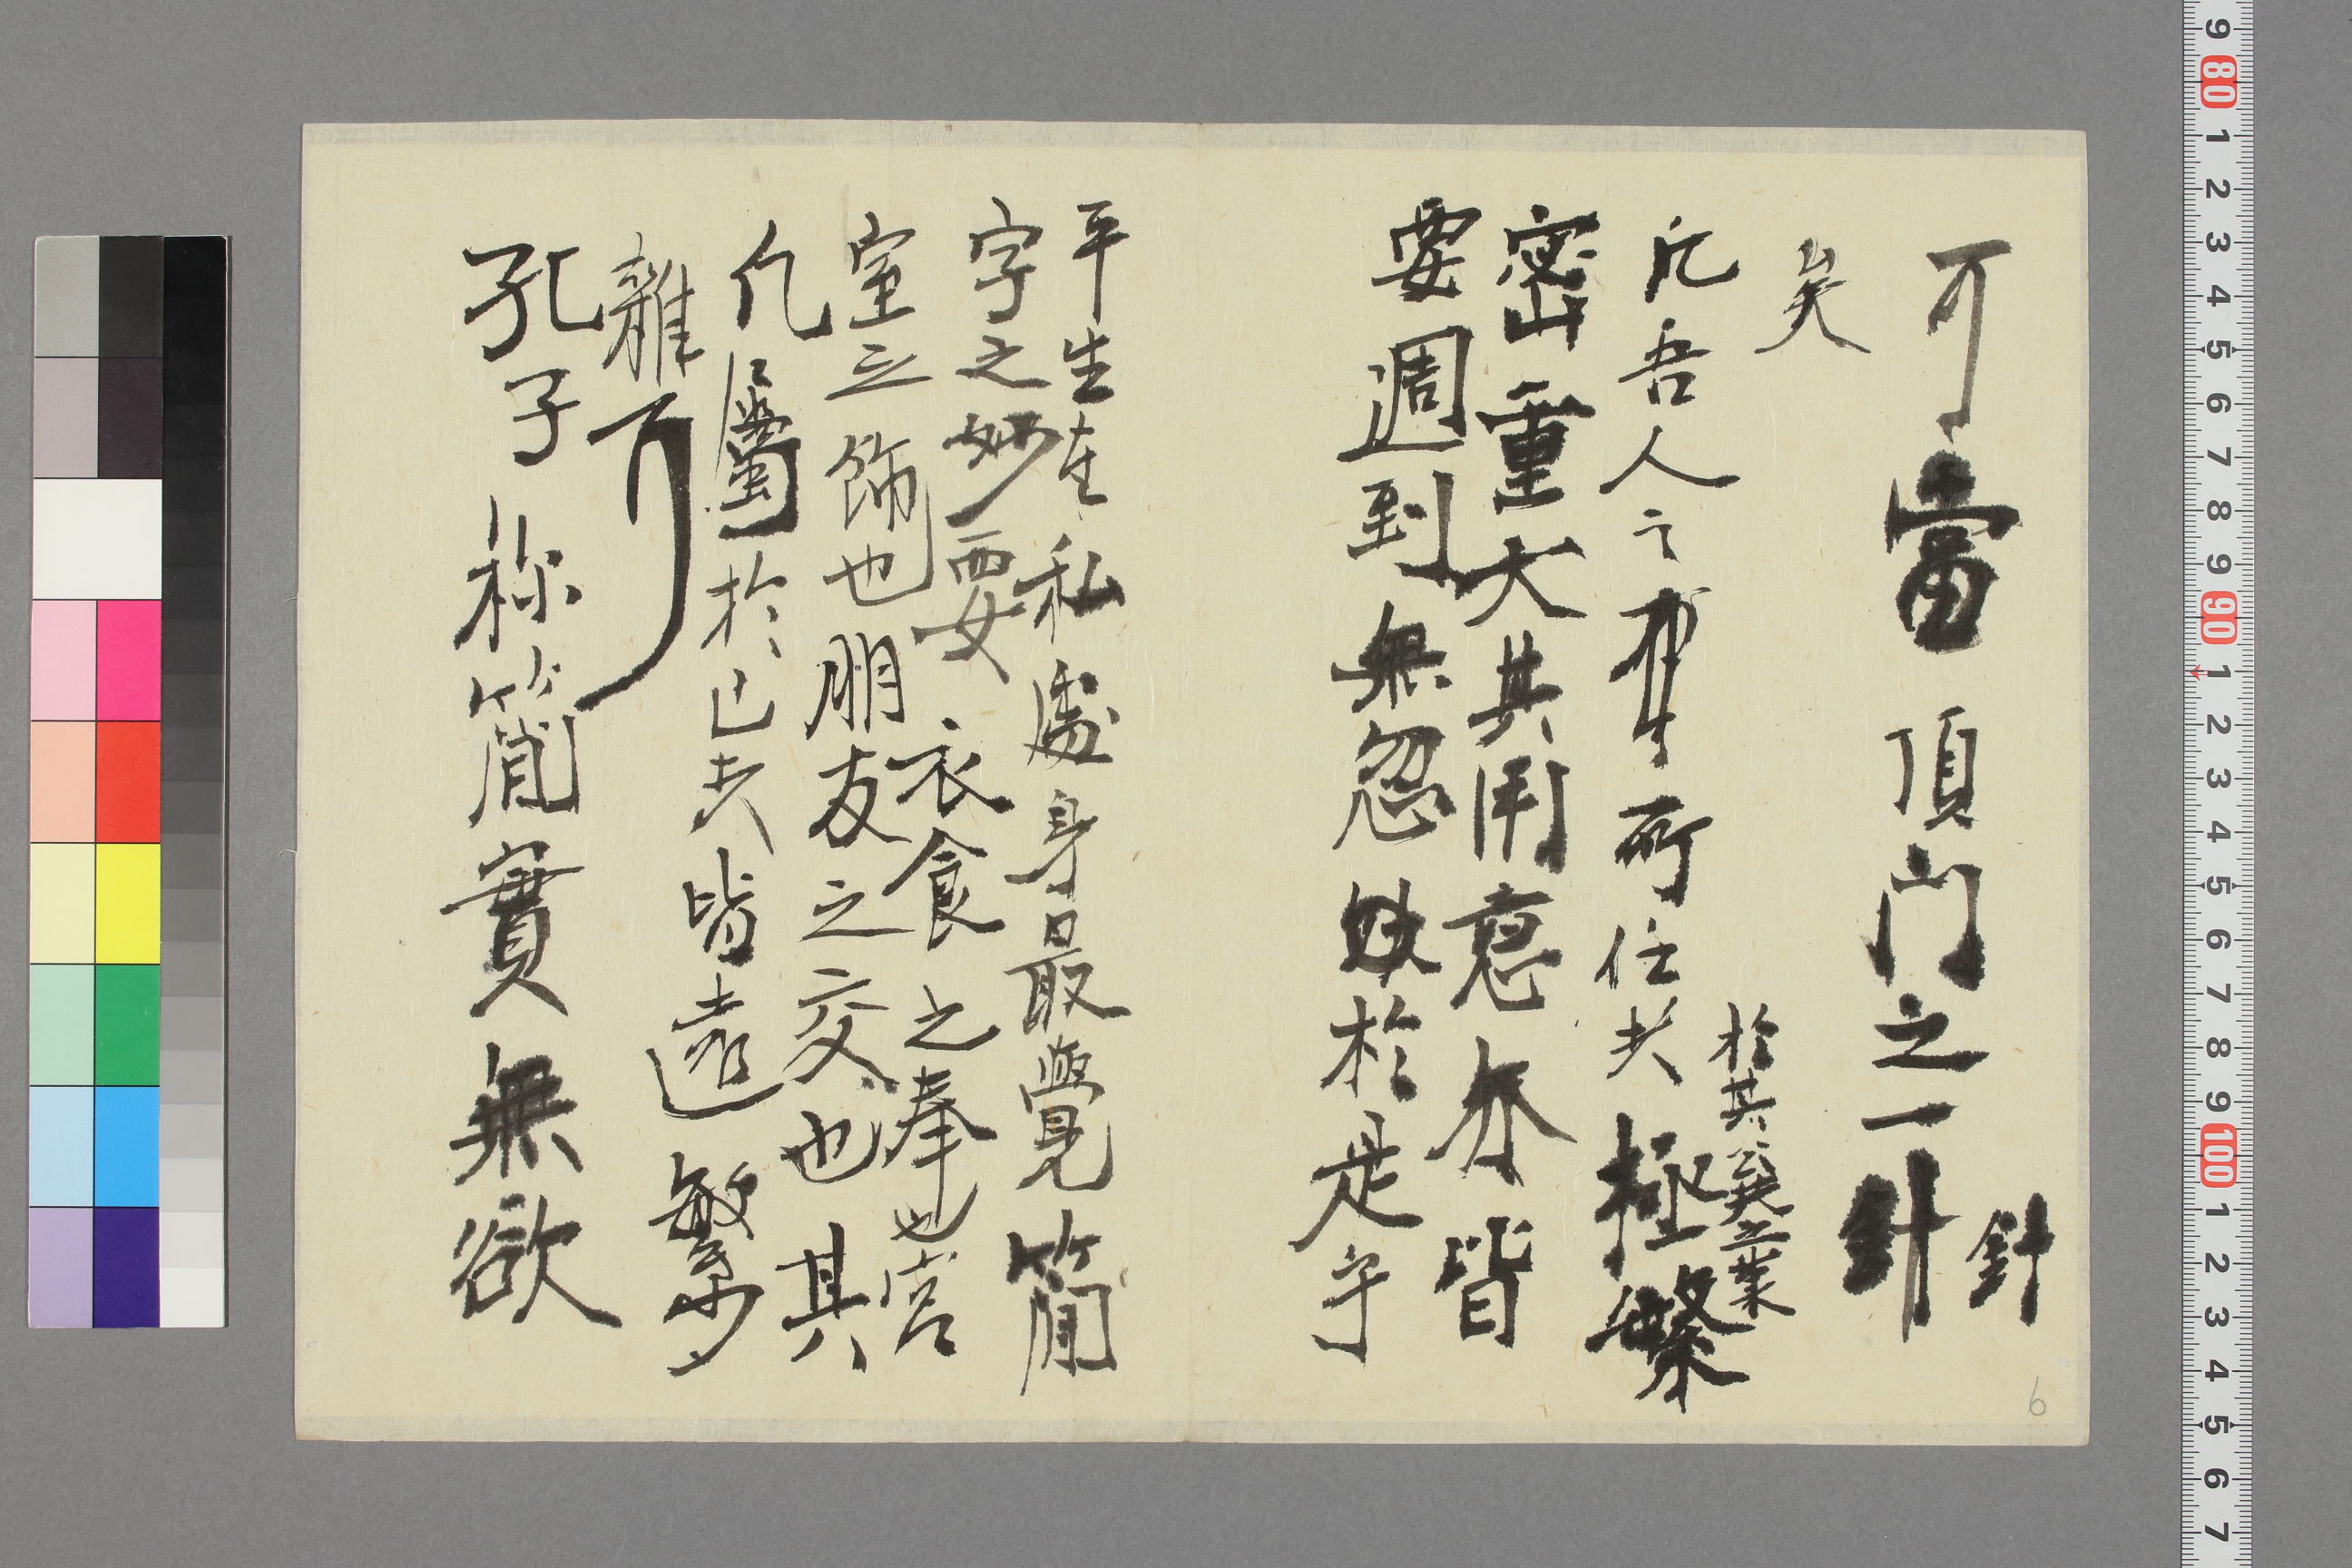 可當頂門之一針
針
矣
凡吾人之事所任者極繁
於其
立業
密重大其用意亦皆
要週到無忽缺於是乎
平生在私處身最覺簡
字之妙要衣食之奉也宮
室之飾也朋友之交也其
凡屬於己者皆遠繁
雜了
孔子称簡實無欲
6